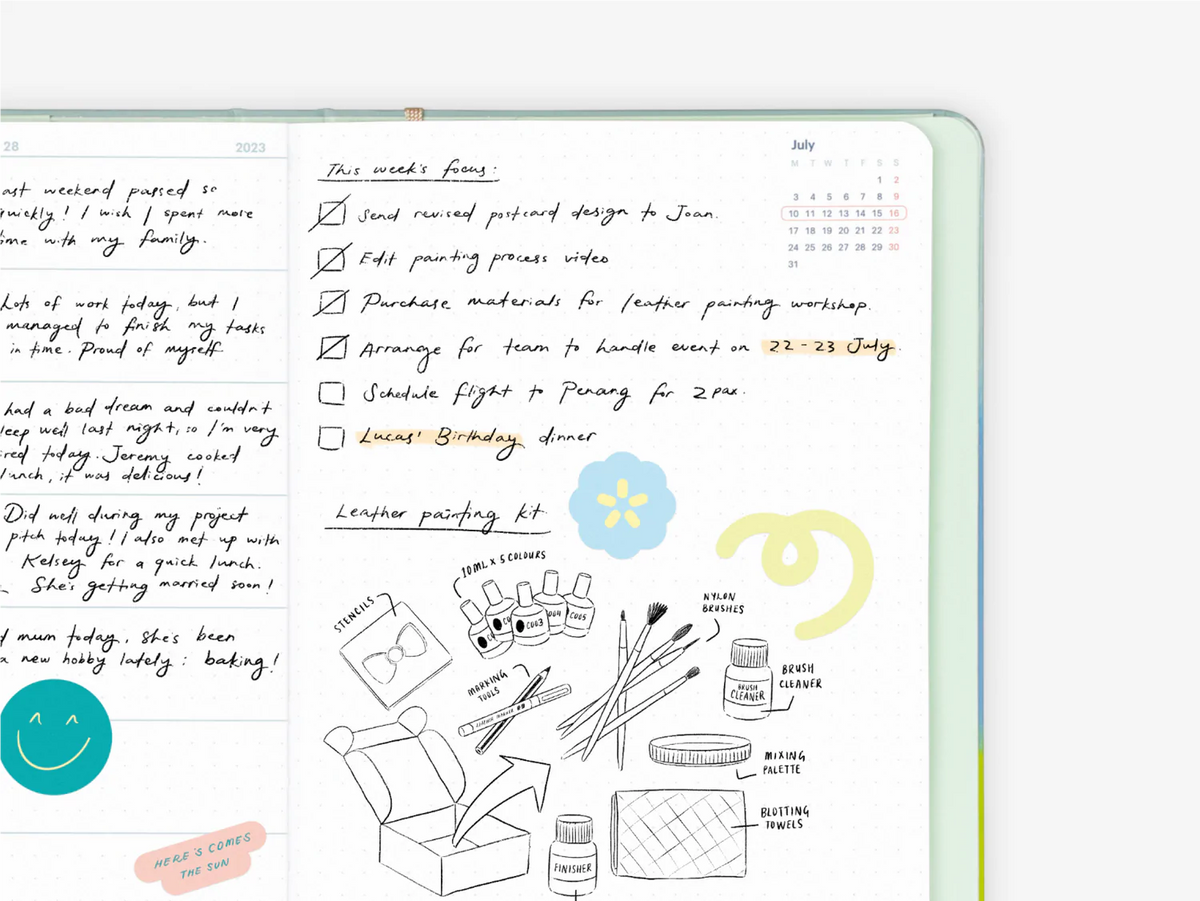 28 2023
ast weekend passed so
quickly! I wish I spent more
time with my family.
Lots of work today, but I
managed to finish my tasks
in time. Proud of myself
had a bad dream and couldn't
leep well last night, so I'm very
ired today. Jeremy cooked
lunch, it was delicious!
Did well during my project
pitch today! I also met up with
Kelsey for a quick lunch.
She's getting married soon!
mum today, she's been
a new hobby lately : baking!
HERE'S COMES
THE SUN
This week's focus:
Send revised postcard design to Joan.
Edit painting process video
Purchase materials for leather painting workshop.
Arrange for team to handle event on 22-23 July.
Schedule flight to Penang for 2 pax.
Lucas' Birthday dinner
July
M T W T F S S
1 2
3 4 5 6 7 8 9
10 11 12 13 14 15 16
17 18 19 20 21 22 23
24 25 26 27 28 29 30
31
Leather painting kit
10ML X 5 COLOURS
STENCILS
C003
004
C005
NYLON
BRUSHES
MARKING
TOOLS
LEATHER MARKER
BRUSH
CLEANER
BRUSH
CLEANER
MIXING
PALETTE
BLOTTING
TOWELS
FINISHER